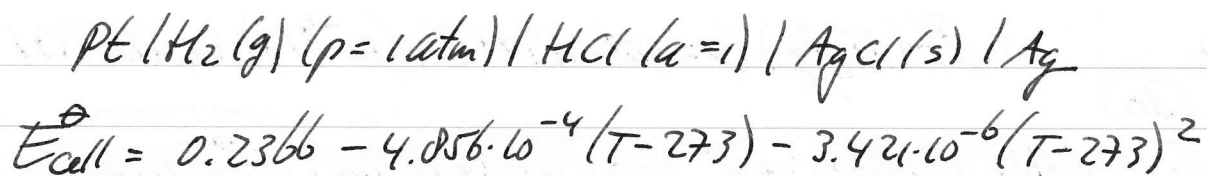 Pt | H₂ (g) (p = 1 atm) | HCl (a = 1) | AgCl (s) | Ag
E⦵cell = 0.2366 − 4.856·10⁻⁴ (T−273) − 3.421·10⁻⁶ (T−273)²